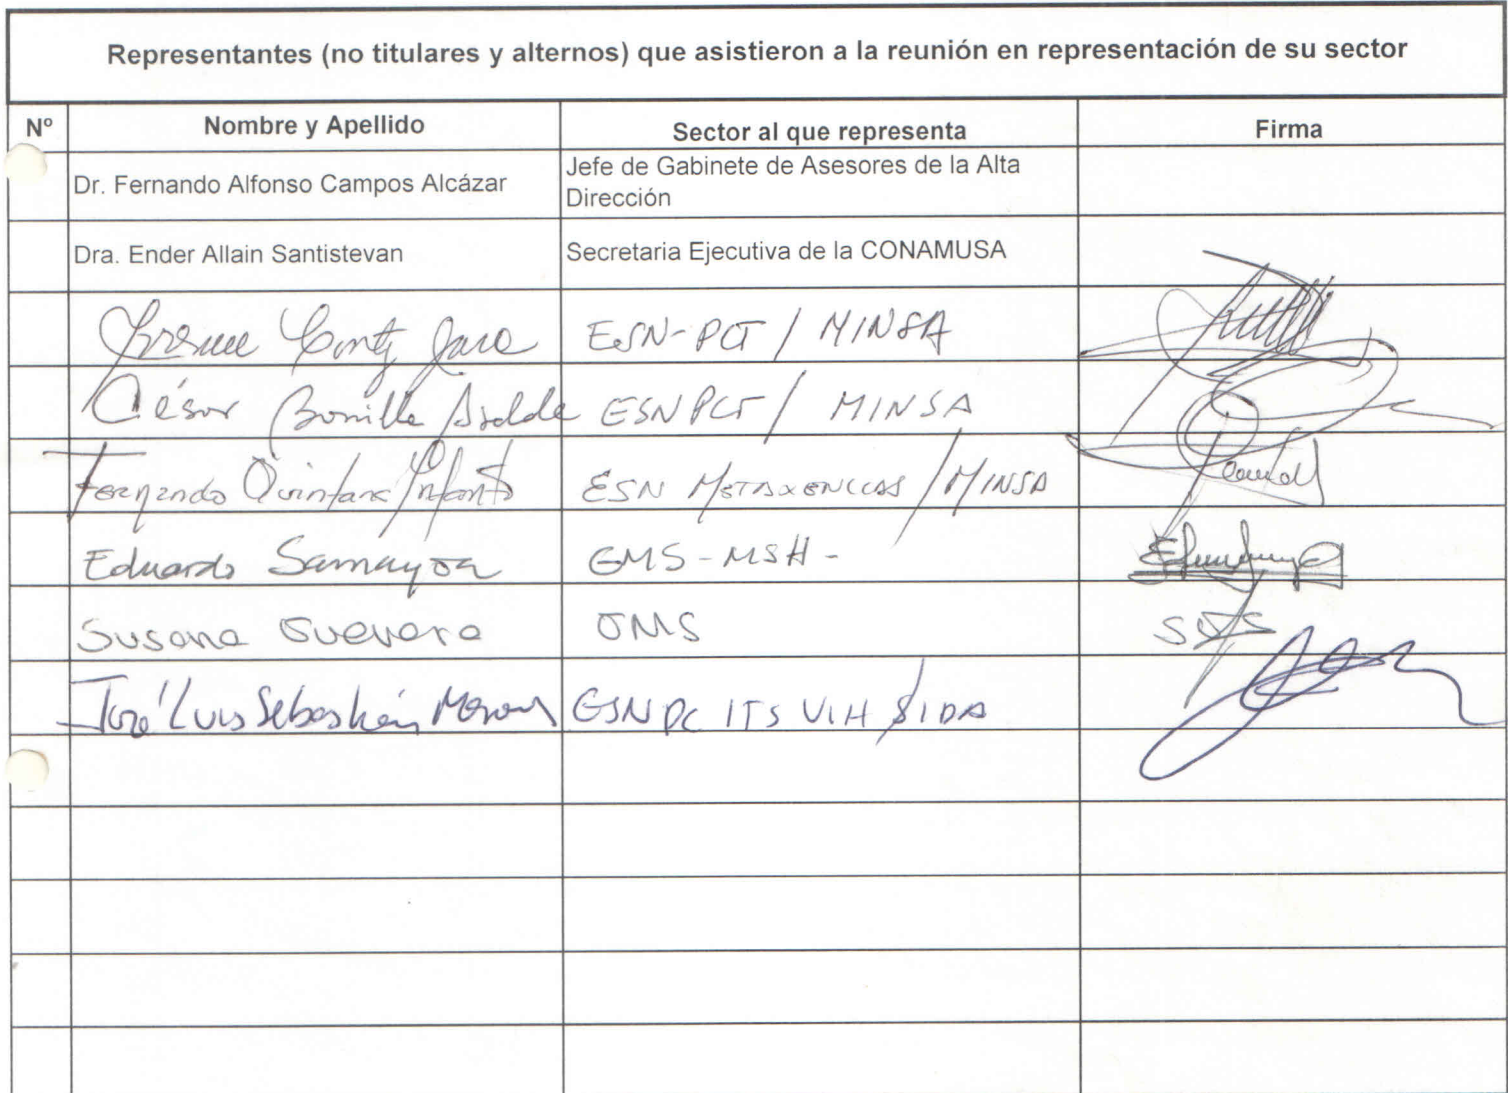 Representantes (no titulares y alternos) que asistieron a la reunión en representación de su sector
Nº Nombre y Apellido Sector al que representa Firma
Dr. Fernando Alfonso Campos Alcázar Jefe de Gabinete de Asesores de la Alta
Dirección
Dra. Ender Allain Santistevan Secretaria Ejecutiva de la CONAMUSA
Jara ESN-PCT / MINSA
César Bonilla Asalde ESNPCT / MINSA
Fernando Quintana Infante ESN METAXENICAS / MINSA
Eduardo Samayoa GMS-MSH-
Susana Guevara OMS
José Luis Sebastián ESNPC ITS VIH SIDA